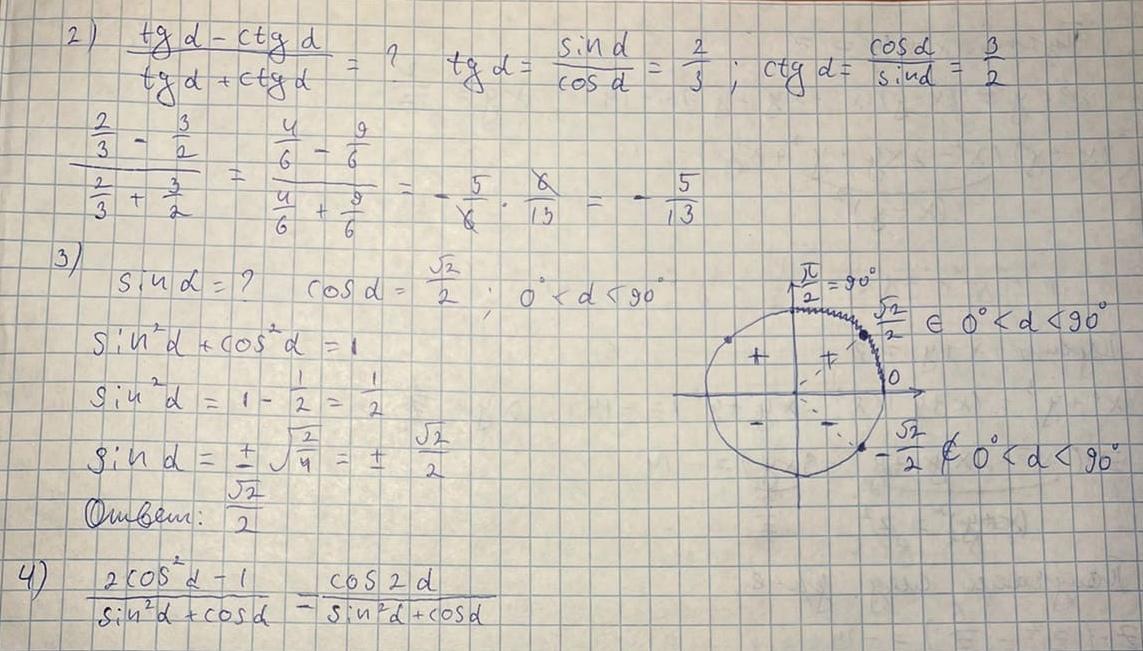 2) (tg α - ctg α)/(tg α + ctg α) = ? tg α = sin α/cos α = 2/3 ; ctg α = cos α/sin α = 3/2
(2/3 - 3/2)/(2/3 + 3/2) = (4/6 - 9/6)/(4/6 + 9/6) = - 5/6 · 6/13 = - 5/13
3) sin α = ? cos α = √2/2 ; 0° < α < 90°
sin²α + cos²α = 1
sin²α = 1 - 1/2 = 1/2
sin α = ± √(2/4) = ± √2/2
Ответ: √2/2
π/2 = 90°
√2/2 ∈ 0° < α < 90°
+ +
0
- -
-√2/2 ∉ 0° < α < 90°
4) (2cos²α - 1)/(sin²α + cos α) = cos 2α/(sin²α + cos α)